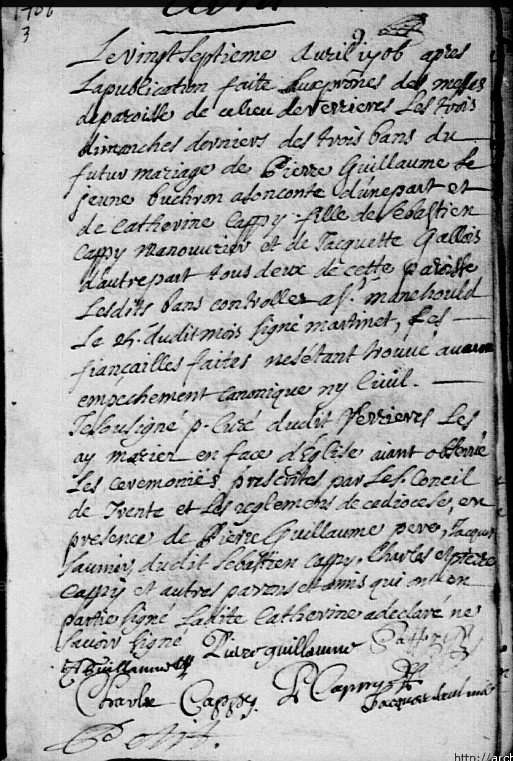 1706
3
Le vingt septieme Avril 1706 apres
La publication faite aux prônes des messes
de paroisse de ce lieu de verrieres Les trois
dimanches derniers des trois bans du
futur mariage de Pierre Guillaume Le
jeune buchron d'une part et
de Catherine Cappy fille de Sebastien
Cappy Manouvrier et de Jacquette Gallois
d'autre part tous deux de cette paroisse
Lesdits bans controllez a Ste manehould
Le 24. dudit mois signé martinet, Les
fiançailles faites ne s'étant trouvé aucun
empechement canonique ny Civil.
Je soussigné p. Curé dudit Verrieres Les
ay marier en face d'Eglise aiant observé
Les ceremonies prescrites par Le St. Concil
de Trente et Les reglemens de ce diocese, en
presence de Pierre Guillaume pere, Jacques
dudit Sebastien Cappy, Charles et pierre
Cappy et autres parens et amis qui ont en
partie signé Ladite Catherine a declaré ne
savoir signé Pierre guillaume
Guillaume
Charle Cappy. P Cappy Jacques
http://arch